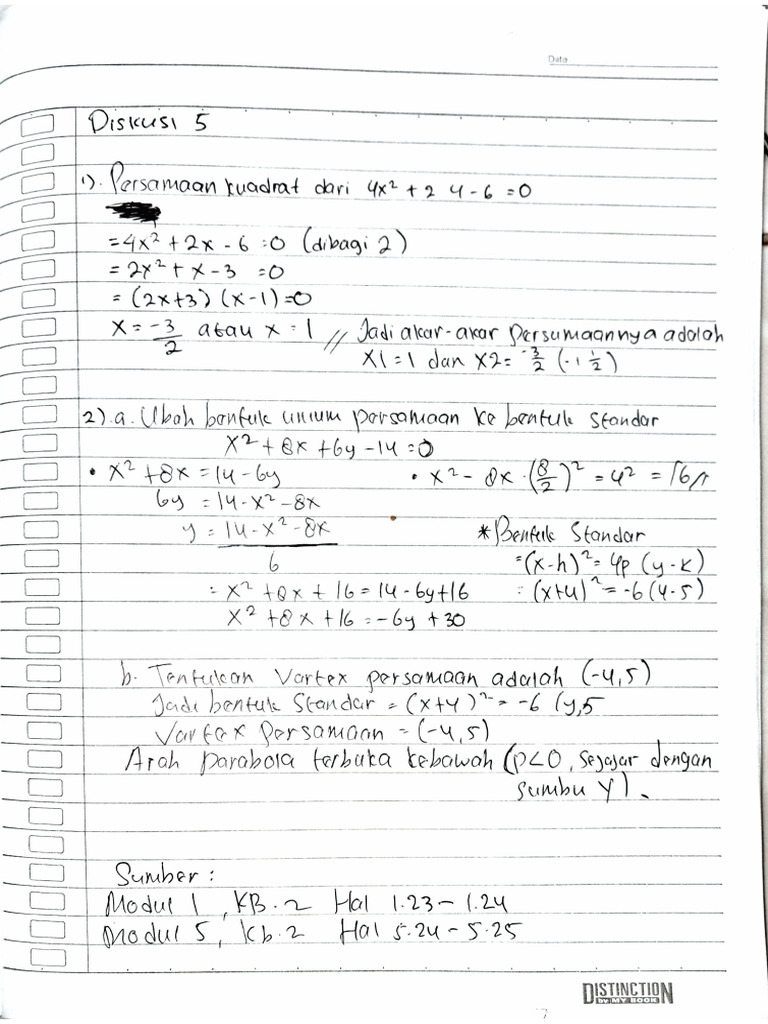 Date
Diskusi 5
1). Persamaan kuadrat dari 4x² + 2 4 - 6 = 0
= 4x² + 2x - 6 = 0 (dibagi 2)
= 2x² + x - 3 = 0
= (2x+3) (x-1) = 0
x = -3/2 atau x = 1 // Jadi akar-akar persamaannya adalah
x1 = 1 dan x2 = -3/2 (-1 1/2)
2). a. Ubah bentuk umum persamaan ke bentuk standar
x² + 8x + 6y - 14 = 0
• x² + 8x = 14 - 6y • x² - 8x · (8/2)² = 4² = 16//
6y = 14 - x² - 8x
y = 14 - x² - 8x * Bentuk Standar
6 = (x-h)² = 4p (y-k)
= x² + 8x + 16 = 14 - 6y + 16 = (x+4)² = -6 (y-5)
x² + 8x + 16 = -6y + 30
b. Tentukan Vartex persamaan adalah (-4,5)
Jadi bentuk Standar = (x+4)² = -6 (y,5
Vartex Persamaan = (-4,5)
Arah parabola terbuka kebawah (p<0, sejajar dengan
sumbu Y).
Sumber :
Modul 1, KB.2 Hal 1.23 - 1.24
Modul 5, Kb.2 Hal 5.24 - 5.25
DISTINCTION
by MY BOOK